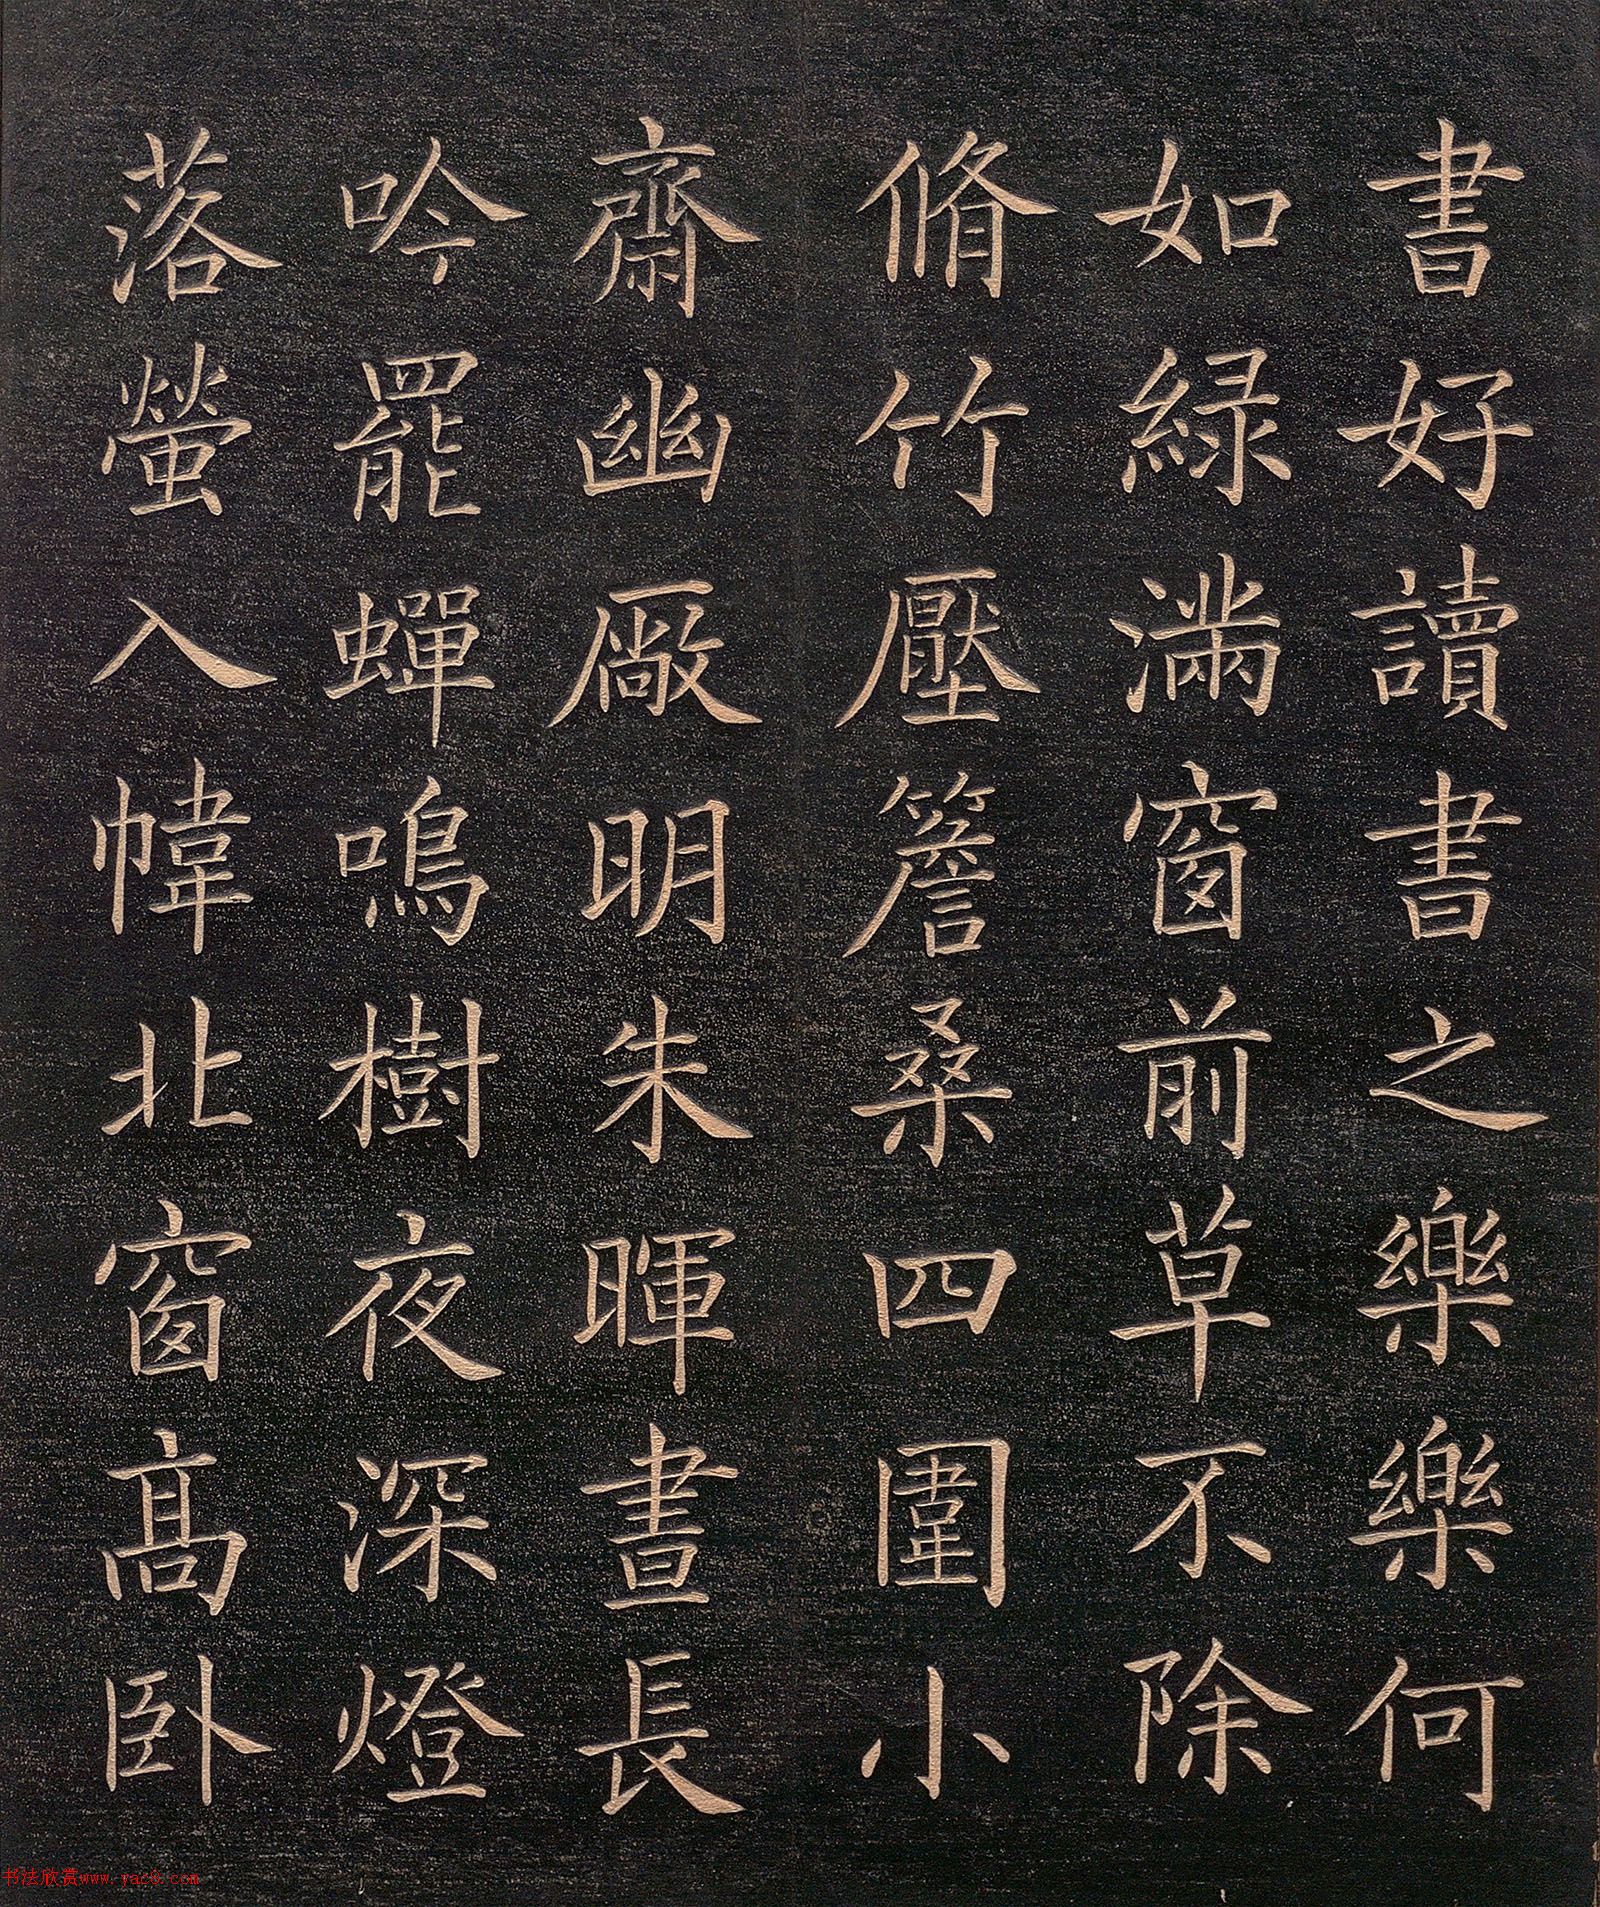 書好讀書之樂樂何
如緑滿窗前草不除
脩竹壓簷桑四圍小
齋幽厰明朱暉晝長
吟罷蟬鳴樹夜深燈
落螢入幃北窗髙卧
书法欣赏www.yac8.com